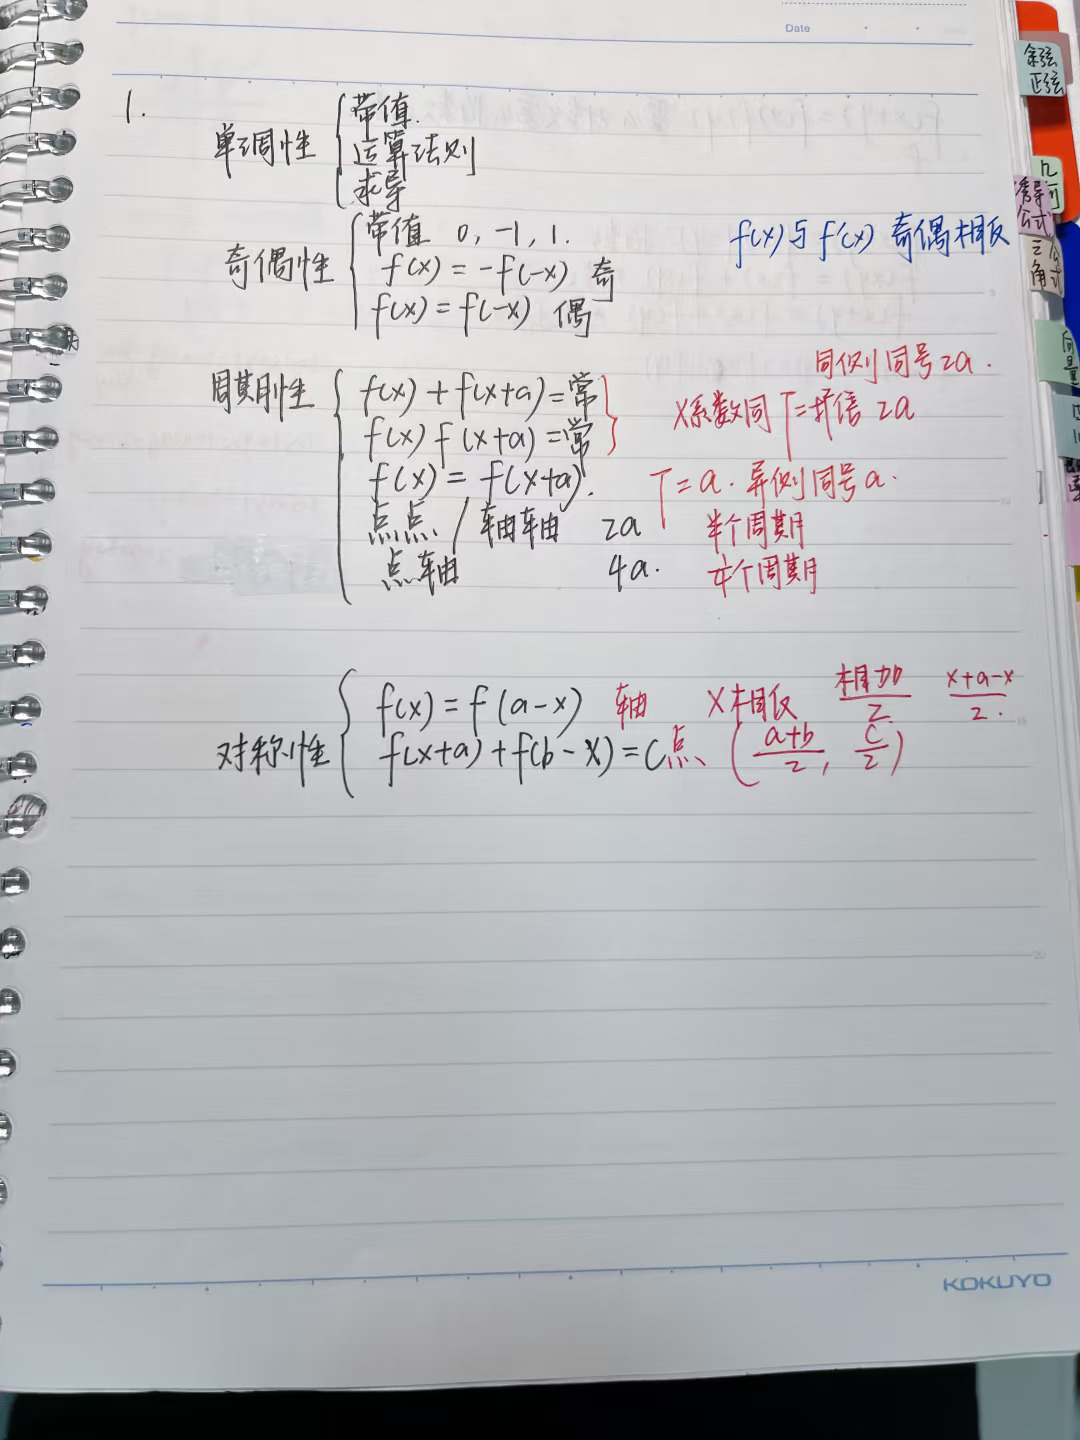 Date
1.
单调性
带值.
运算法则
求导
奇偶性
带值 0, -1, 1.
f(x) = -f(-x) 奇
f(x) = f(-x) 偶
f(x)与f'(x) 奇偶相反
周期性
f(x) + f(x+a) = 常
f(x) f(x+a) = 常
f(x) = f(x+a).
点点 / 轴轴 2a
点轴 4a.
同侧同号2a.
x系数同 T= 2a
T=a. 异侧同号a.
半个周期
个周期
对称性
f(x) = f(a-x) 轴 x相反 相加/2 x+a-x/2.
f(x+a) + f(b-x) = C 点 (a+b/2, C/2)
KOKUYO
余弦
正弦
几何
诱导公式
三角公式
向量